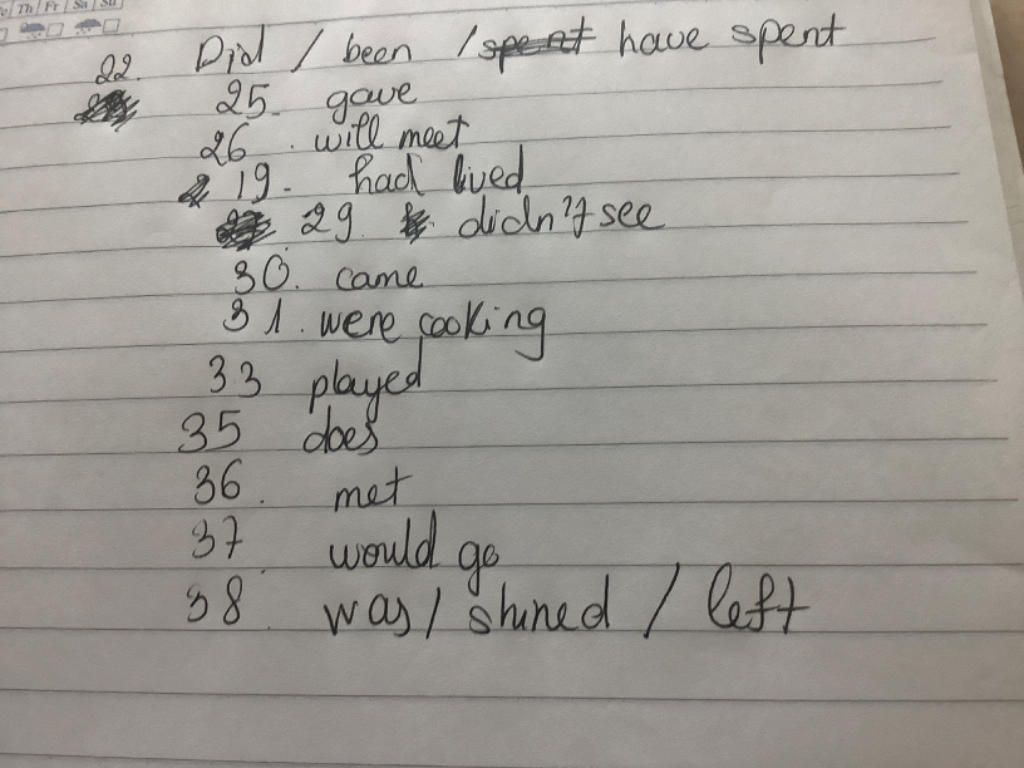 Th Fr Sa Su
22. Did / been / spent have spent
25. gave
26. will meet
19. had lived
29. didn't see
30. came
31. were cooking
33 played
35 does
36. met
37. would go
38. was / shined / left